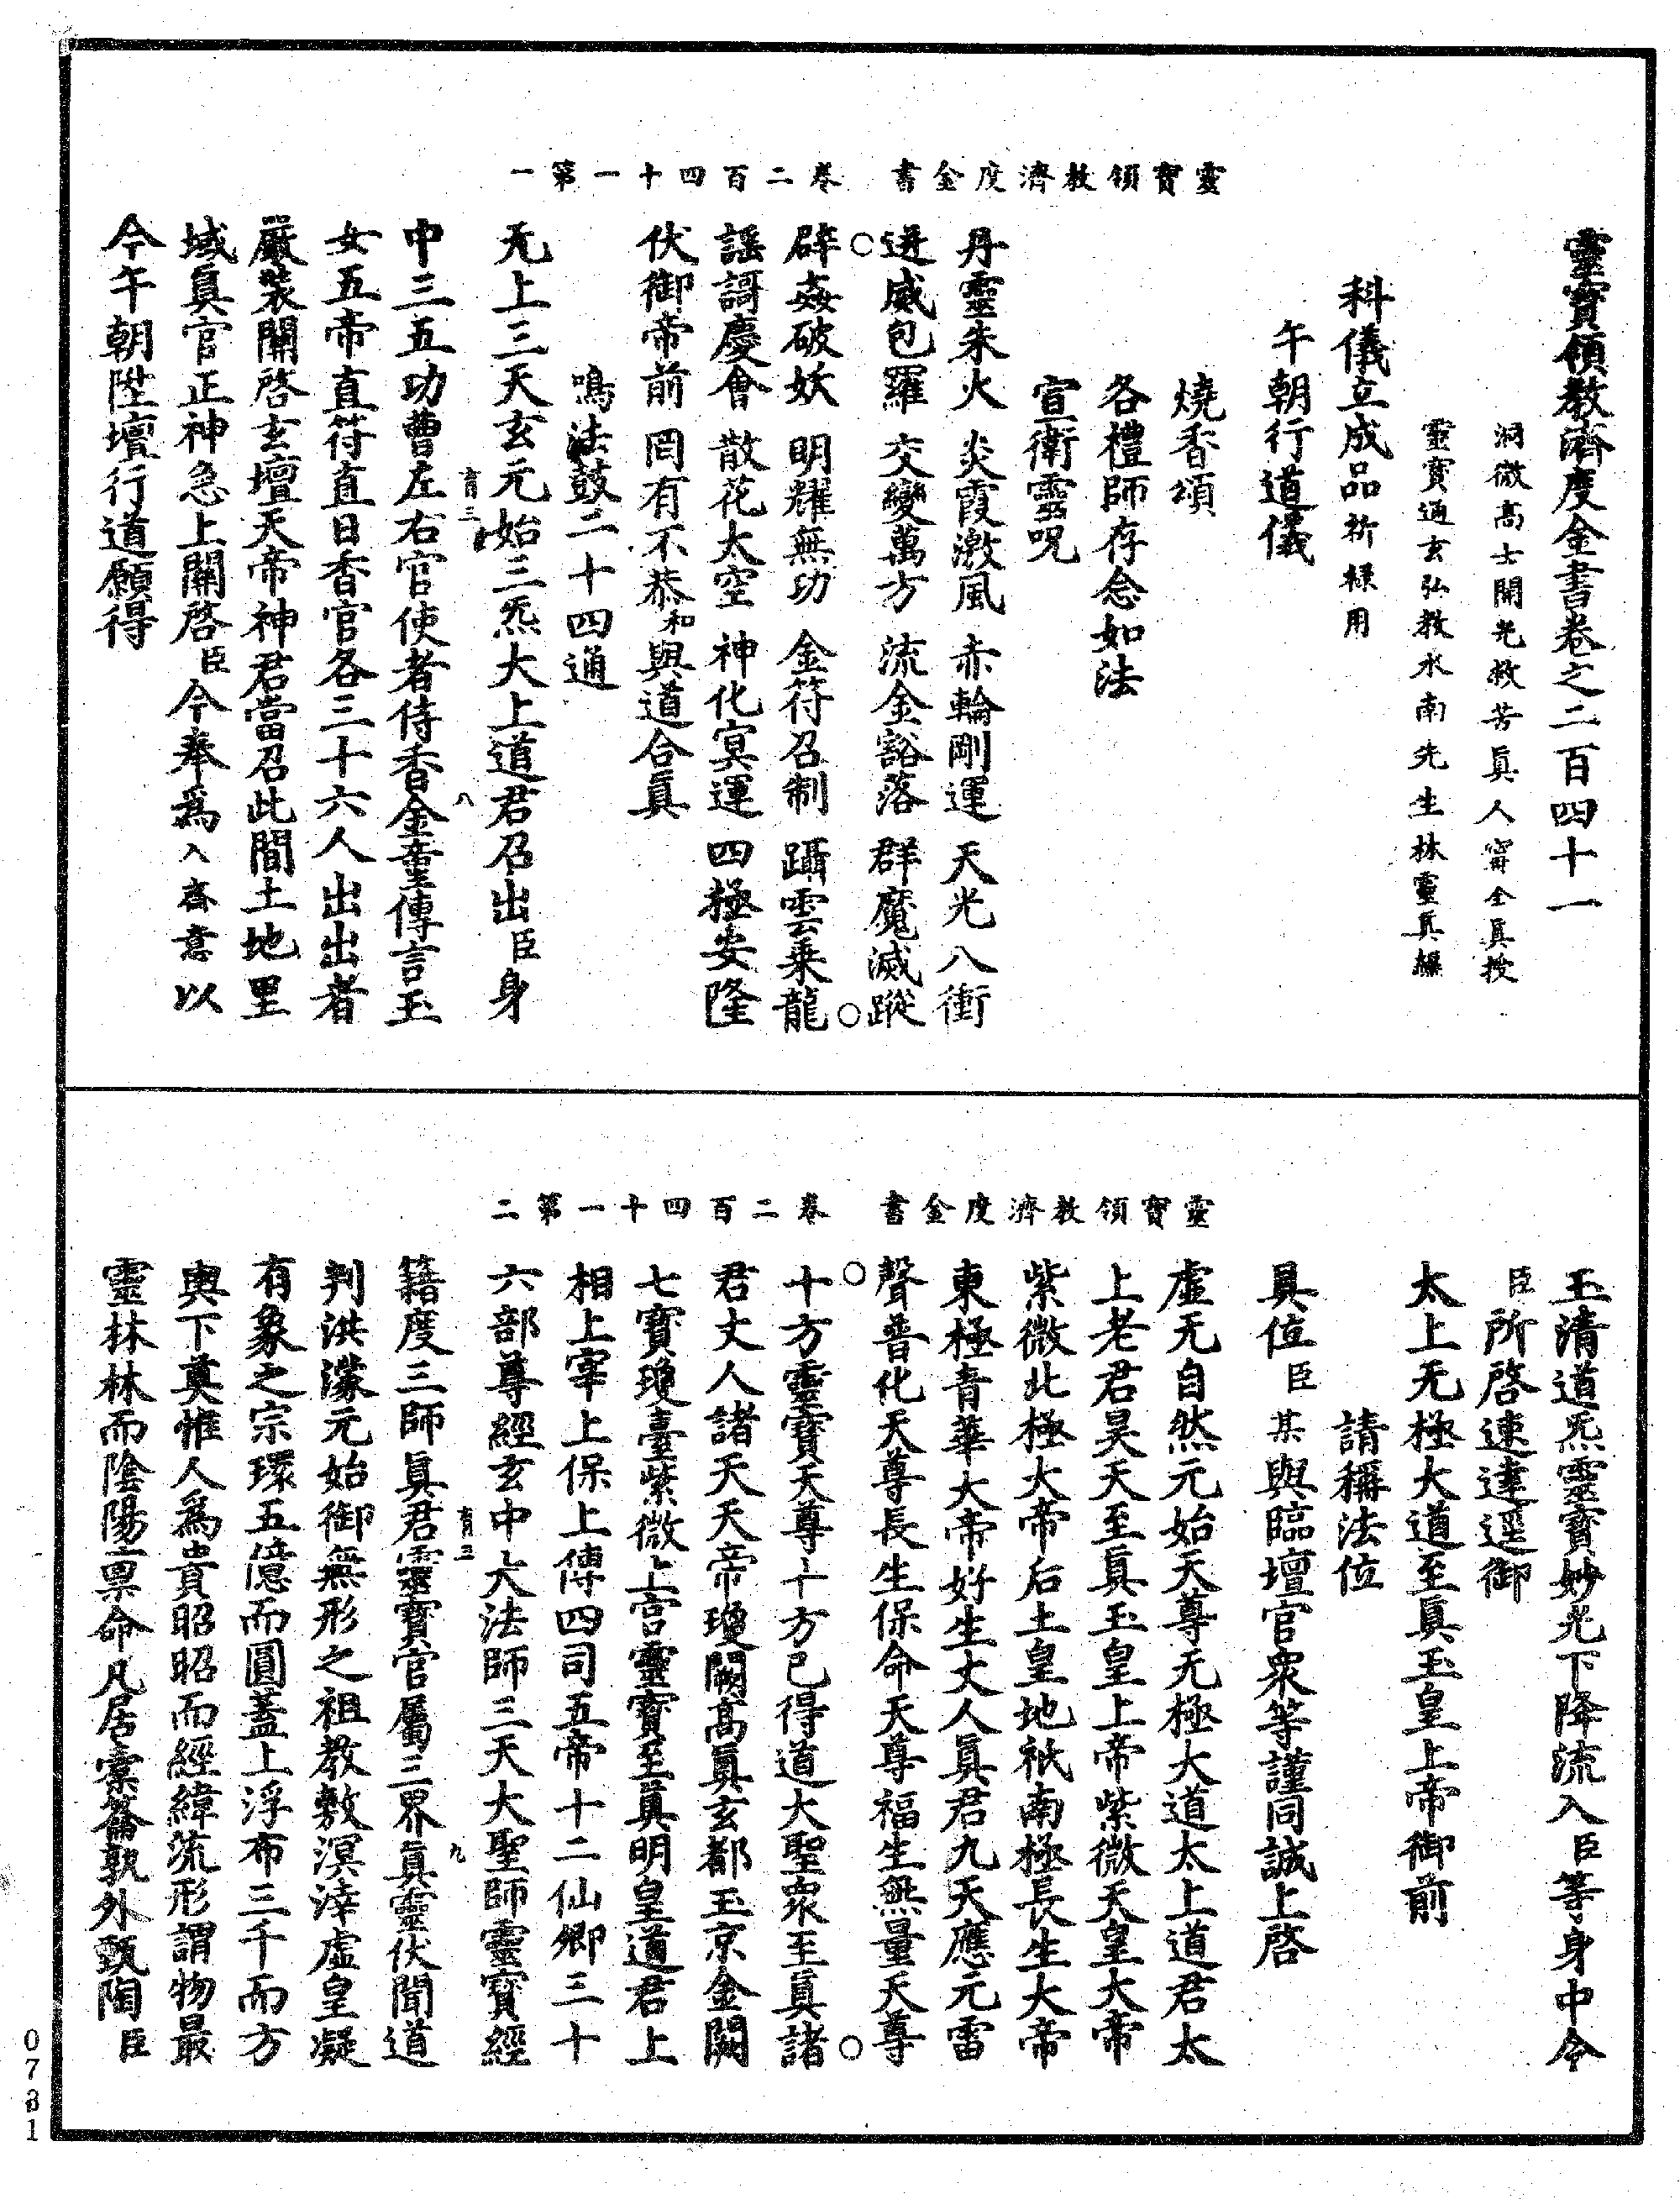 靈寶領教濟度金書　卷二百四十一第一
靈寶領教濟度金書卷之二百四十一
洞微高士開光救苦眞人甯全眞授
靈寶通玄弘教水南先生林靈眞編
科儀立成品祈禳用
午朝行道儀
燒香頌
各禮師存念如法
宣衛靈呪
丹靈朱火　炎霞激風　赤輪剛運　天光八衝
迸威包羅　交變萬方　流金豁落　群魔滅蹤
辟姦破妖　明耀無功　金符召制　躡雲乗龍
謡謌慶會　散花太空　神化冥運　四極安隆
伏御帝前　罔有不恭和與道合眞
鳴法鼓二十四通
无上三天玄元始三炁太上道君召出臣身
中三五功曹左右官使者侍香金童傳言玉
女五帝直符直日香官各三十六人出出者
嚴裝關啓玄壇天帝神君當召此間土地里
域眞官正神急上關啓臣今奉爲入齋意以
今午朝陞壇行道願得
靈寶領教濟度金書　卷二百四十一第二
玉清道炁靈寶妙光下降流入臣等身中令
臣所啓速達逕御
太上无極大道至眞玉皇上帝御前
請稱法位
具位臣某與臨壇官衆等謹同誠上啓
虛无自然元始天尊无極大道太上道君太
上老君昊天至眞玉皇上帝紫微天皇大帝
紫微北極大帝后土皇地祇南極長生大帝
東極青華大帝好生丈人眞君九天應元雷
聲普化天尊長生保命天尊福生無量天尊
十方靈寶天尊十方已得道大聖衆至眞諸
君丈人諸天天帝瓊闕高眞玄都玉京金闕
七寶瓊臺紫微上宮靈寶至眞明皇道君上
相上宰上保上傅四司五帝十二仙卿三十
六部尊經玄中大法師三天大聖師靈寶經
籍度三師眞君靈寶官屬三界眞靈伏聞道
判洪濛元始御無形之祖教敷溟涬虛皇凝
有象之宗環五億而圓蓋上浮布三千而方
輿下奠惟人爲貴昭昭而經緯流形謂物最
靈林林而陰陽禀命凡居橐籥孰外甄陶臣
0731